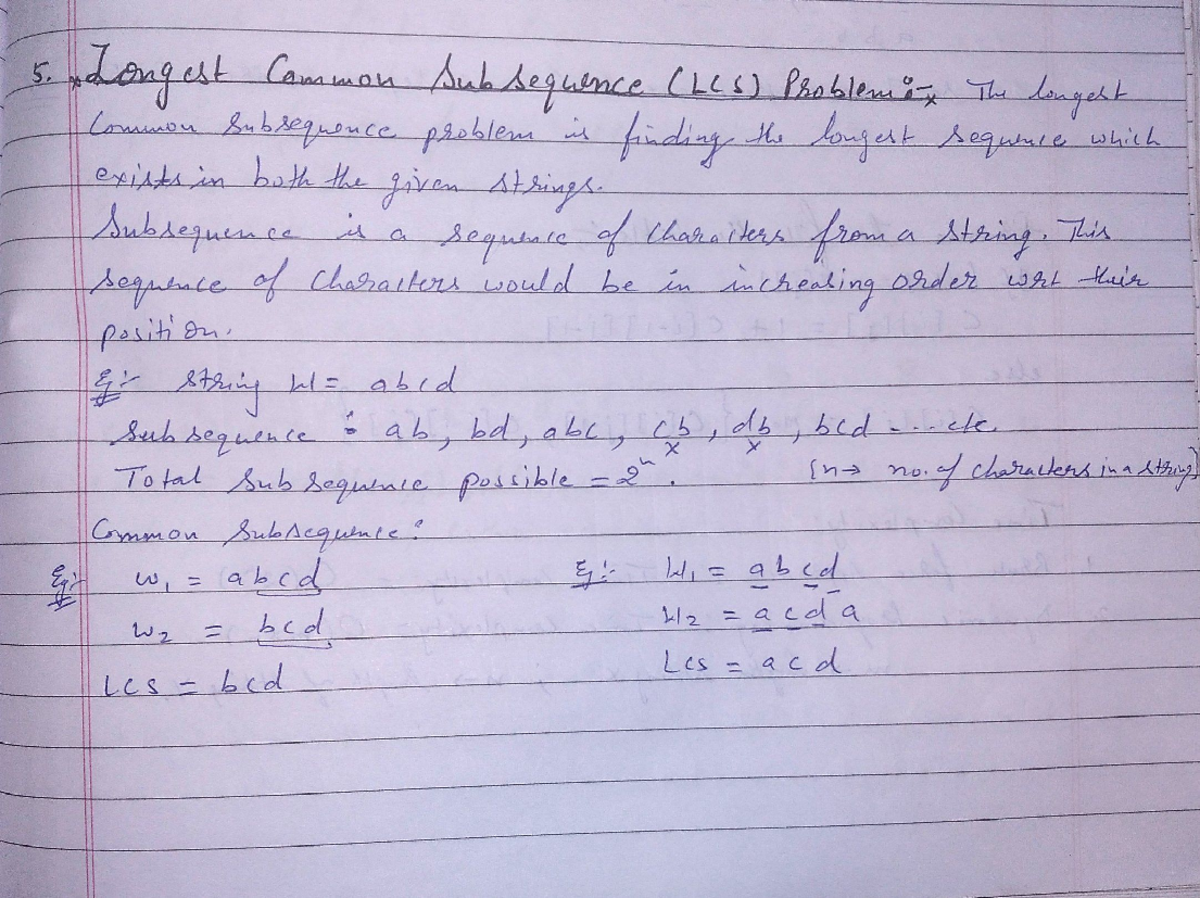 5. Longest Common Subsequence (LCS) Problem :- The longest
Common Subsequence problem is finding the longest sequence which
exists in both the given strings.
Subsequence is a sequence of characters from a string. This
sequence of characters would be in increasing order wrt their
position.
Eg:- string W = abcd
Subsequence : ab, bd, abc, cb, db, bcd ... etc.
x x
Total Subsequence possible = 2ⁿ. [n → no. of characters in a string]
Common Subsequence:
Eg:- w₁ = abcd Eg:- W₁ = abcd
w₂ = bcd W₂ = acda
LCS = bcd LCS = acd